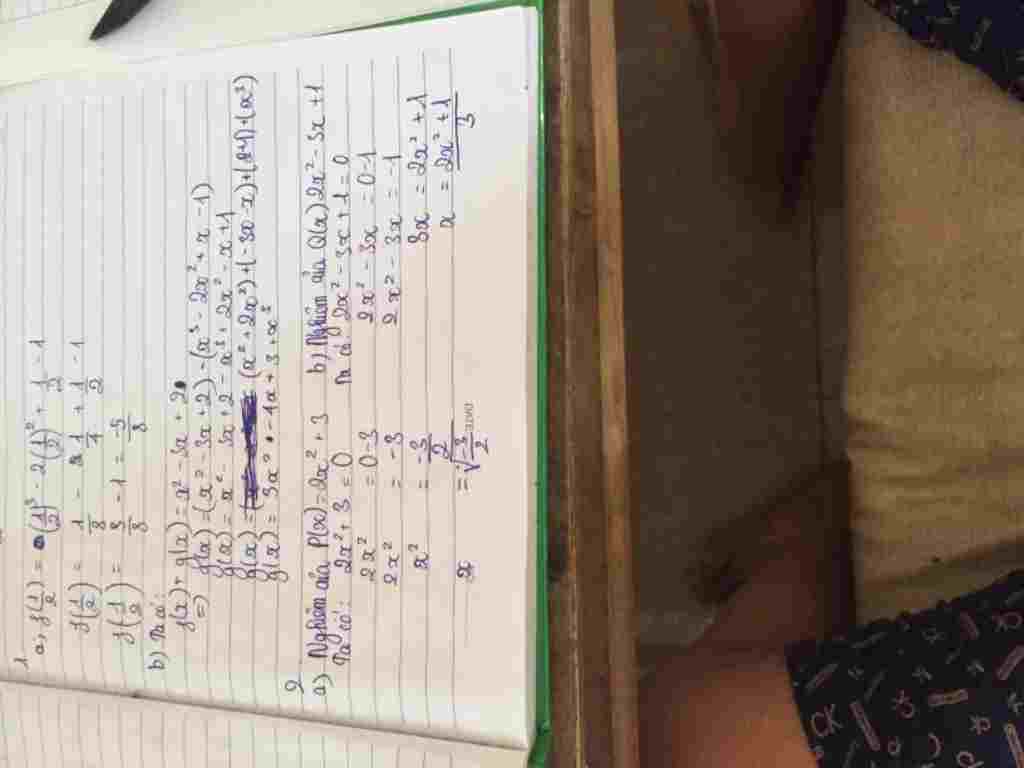 1
a, f(1/2) = (1/2)³ - 2(1/2)² + 1/2 - 1
f(1/2) = 1/8 - 2 1/4 + 1/2 - 1
f(1/2) = 5/8 - 1 = -3/8
b) Ta có:
f(x) + g(x) = x² - 3x + 2
=> g(x) = (x² - 3x + 2) - (x³ - 2x² + x - 1)
g(x) = x² - 3x + 2 - x³ + 2x² - x + 1
g(x) = (x² + 2x²) + (-3x - x) + (2+1) + (x³)
g(x) = 3x² - 4x + 3 + x³
2
a) Nghiệm của P(x) = 2x² + 3
Ta có: 2x² + 3 = 0
2x² = 0-3
2x² = -3
x² = -3/2
x = √-3/2
b) Nghiệm của Q(x) 2x² - 3x + 1
Ta có 2x² - 3x + 1 = 0
2x² - 3x = 0-1
2x² - 3x = -1
3x = 2x² + 1
x = 2x² + 1/3
CK